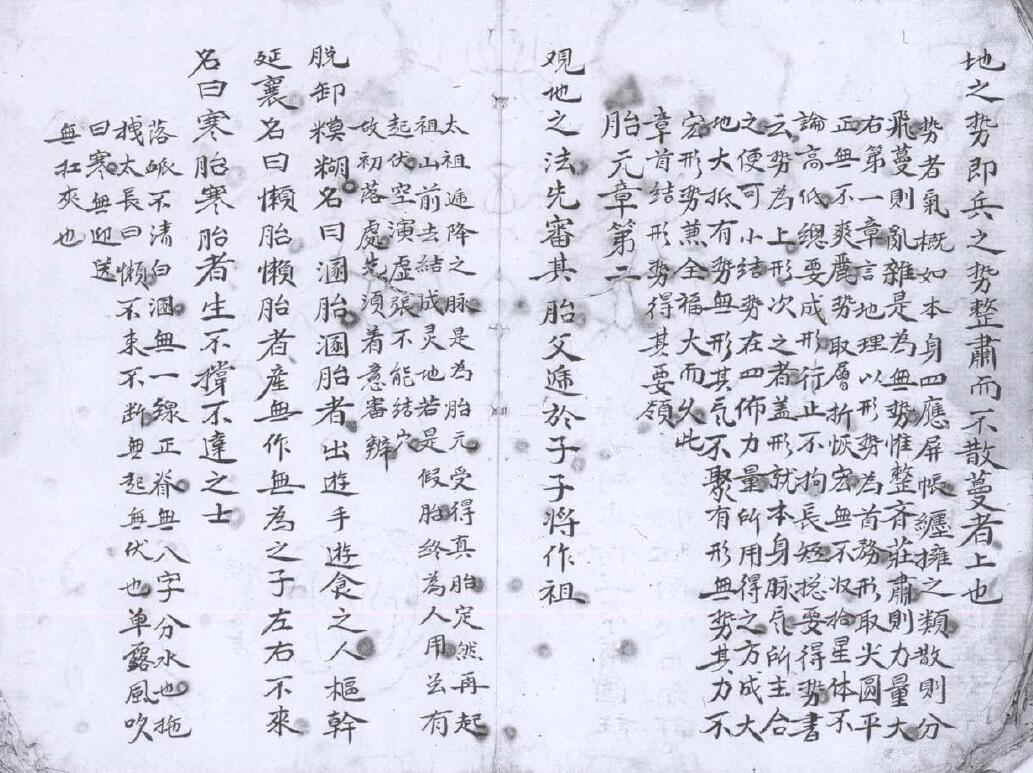 地之势即兵之势整肅而不散蔓者上也
势者氣概如本身四應屏帳纒擁之類散則分
飛蔓則亂雜是為無势惟整齐莊肅則力量大
右第一章言地理以形势為首務形取尖圆平
正無不爽麗势取層折恢宏無不収拾星体不
論高低總要成形行止不拘長短捴要得势書
云势為上形次之者盖形就本身脉气所主合
之便可小结势在四佈力量所用得之方成大
地大抵有势無形其气不聚有形無势其力不
宏形势蕙全福大而久此
章首结形势得其要领
胎元章第二
观地之法先審其胎父遞於子子將作祖
太祖逓降之脉是為胎元受得真胎定然再起
祖山前去結成灵地若是假胎終為人用並有
起伏空演虚張不能結穴
故初落處先須着意審辨
脱卸糢糊名曰溷胎溷胎者出遊手遊食之人樞幹
延襄名曰懶胎懶胎者產無作無為之子左右不來
名曰寒胎寒胎者生不撑不達之士
落脈不清白溷無一線正脊無八字分水地拖
拽太長曰懶不束不断無起無伏也单露風吹
曰寒無迎送
無扛夾也